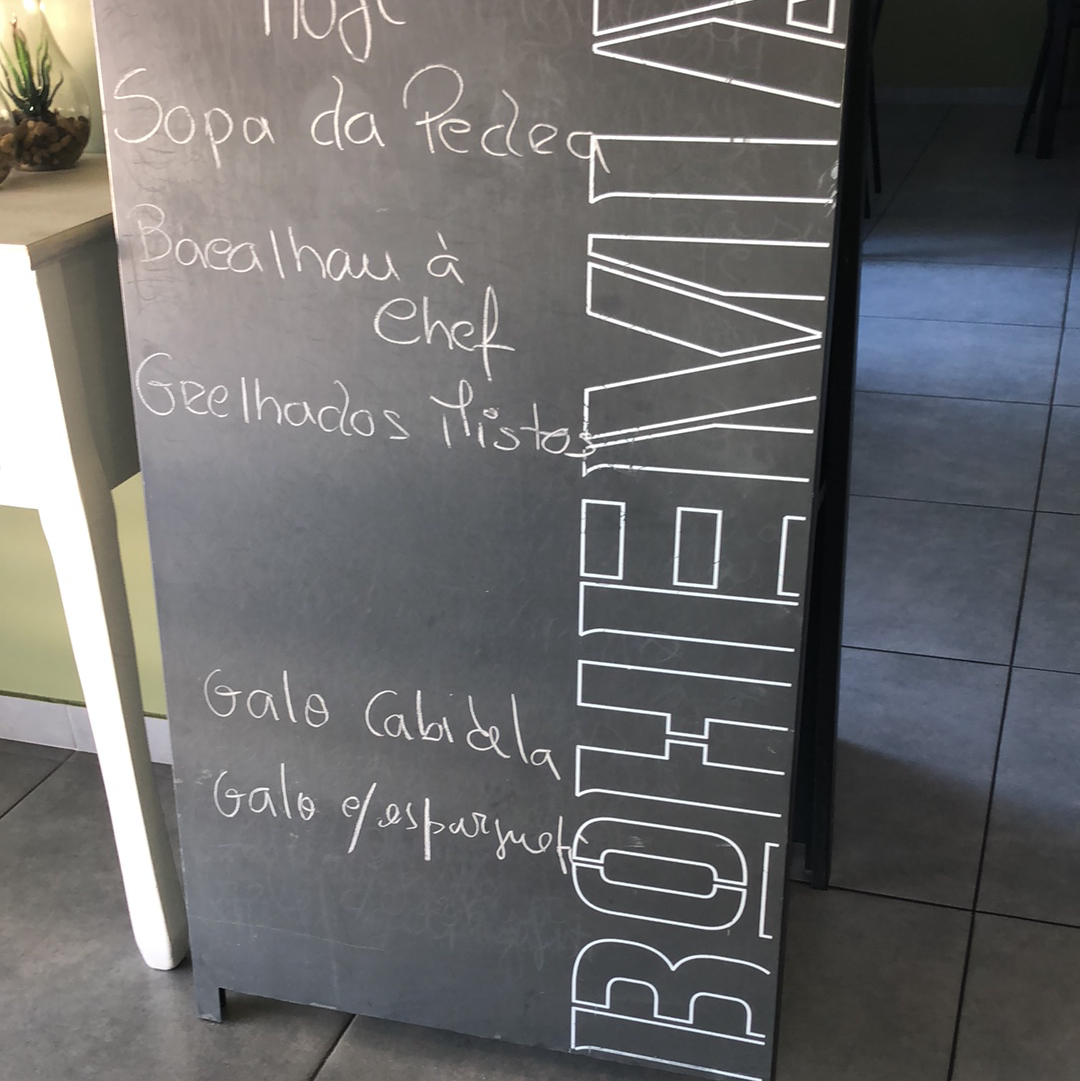 Hoje
Sopa da Pedra
Bacalhau à
Chef
Grelhados Mistos
Galo Cabidela
Galo c/esparguet
BOHEMIA